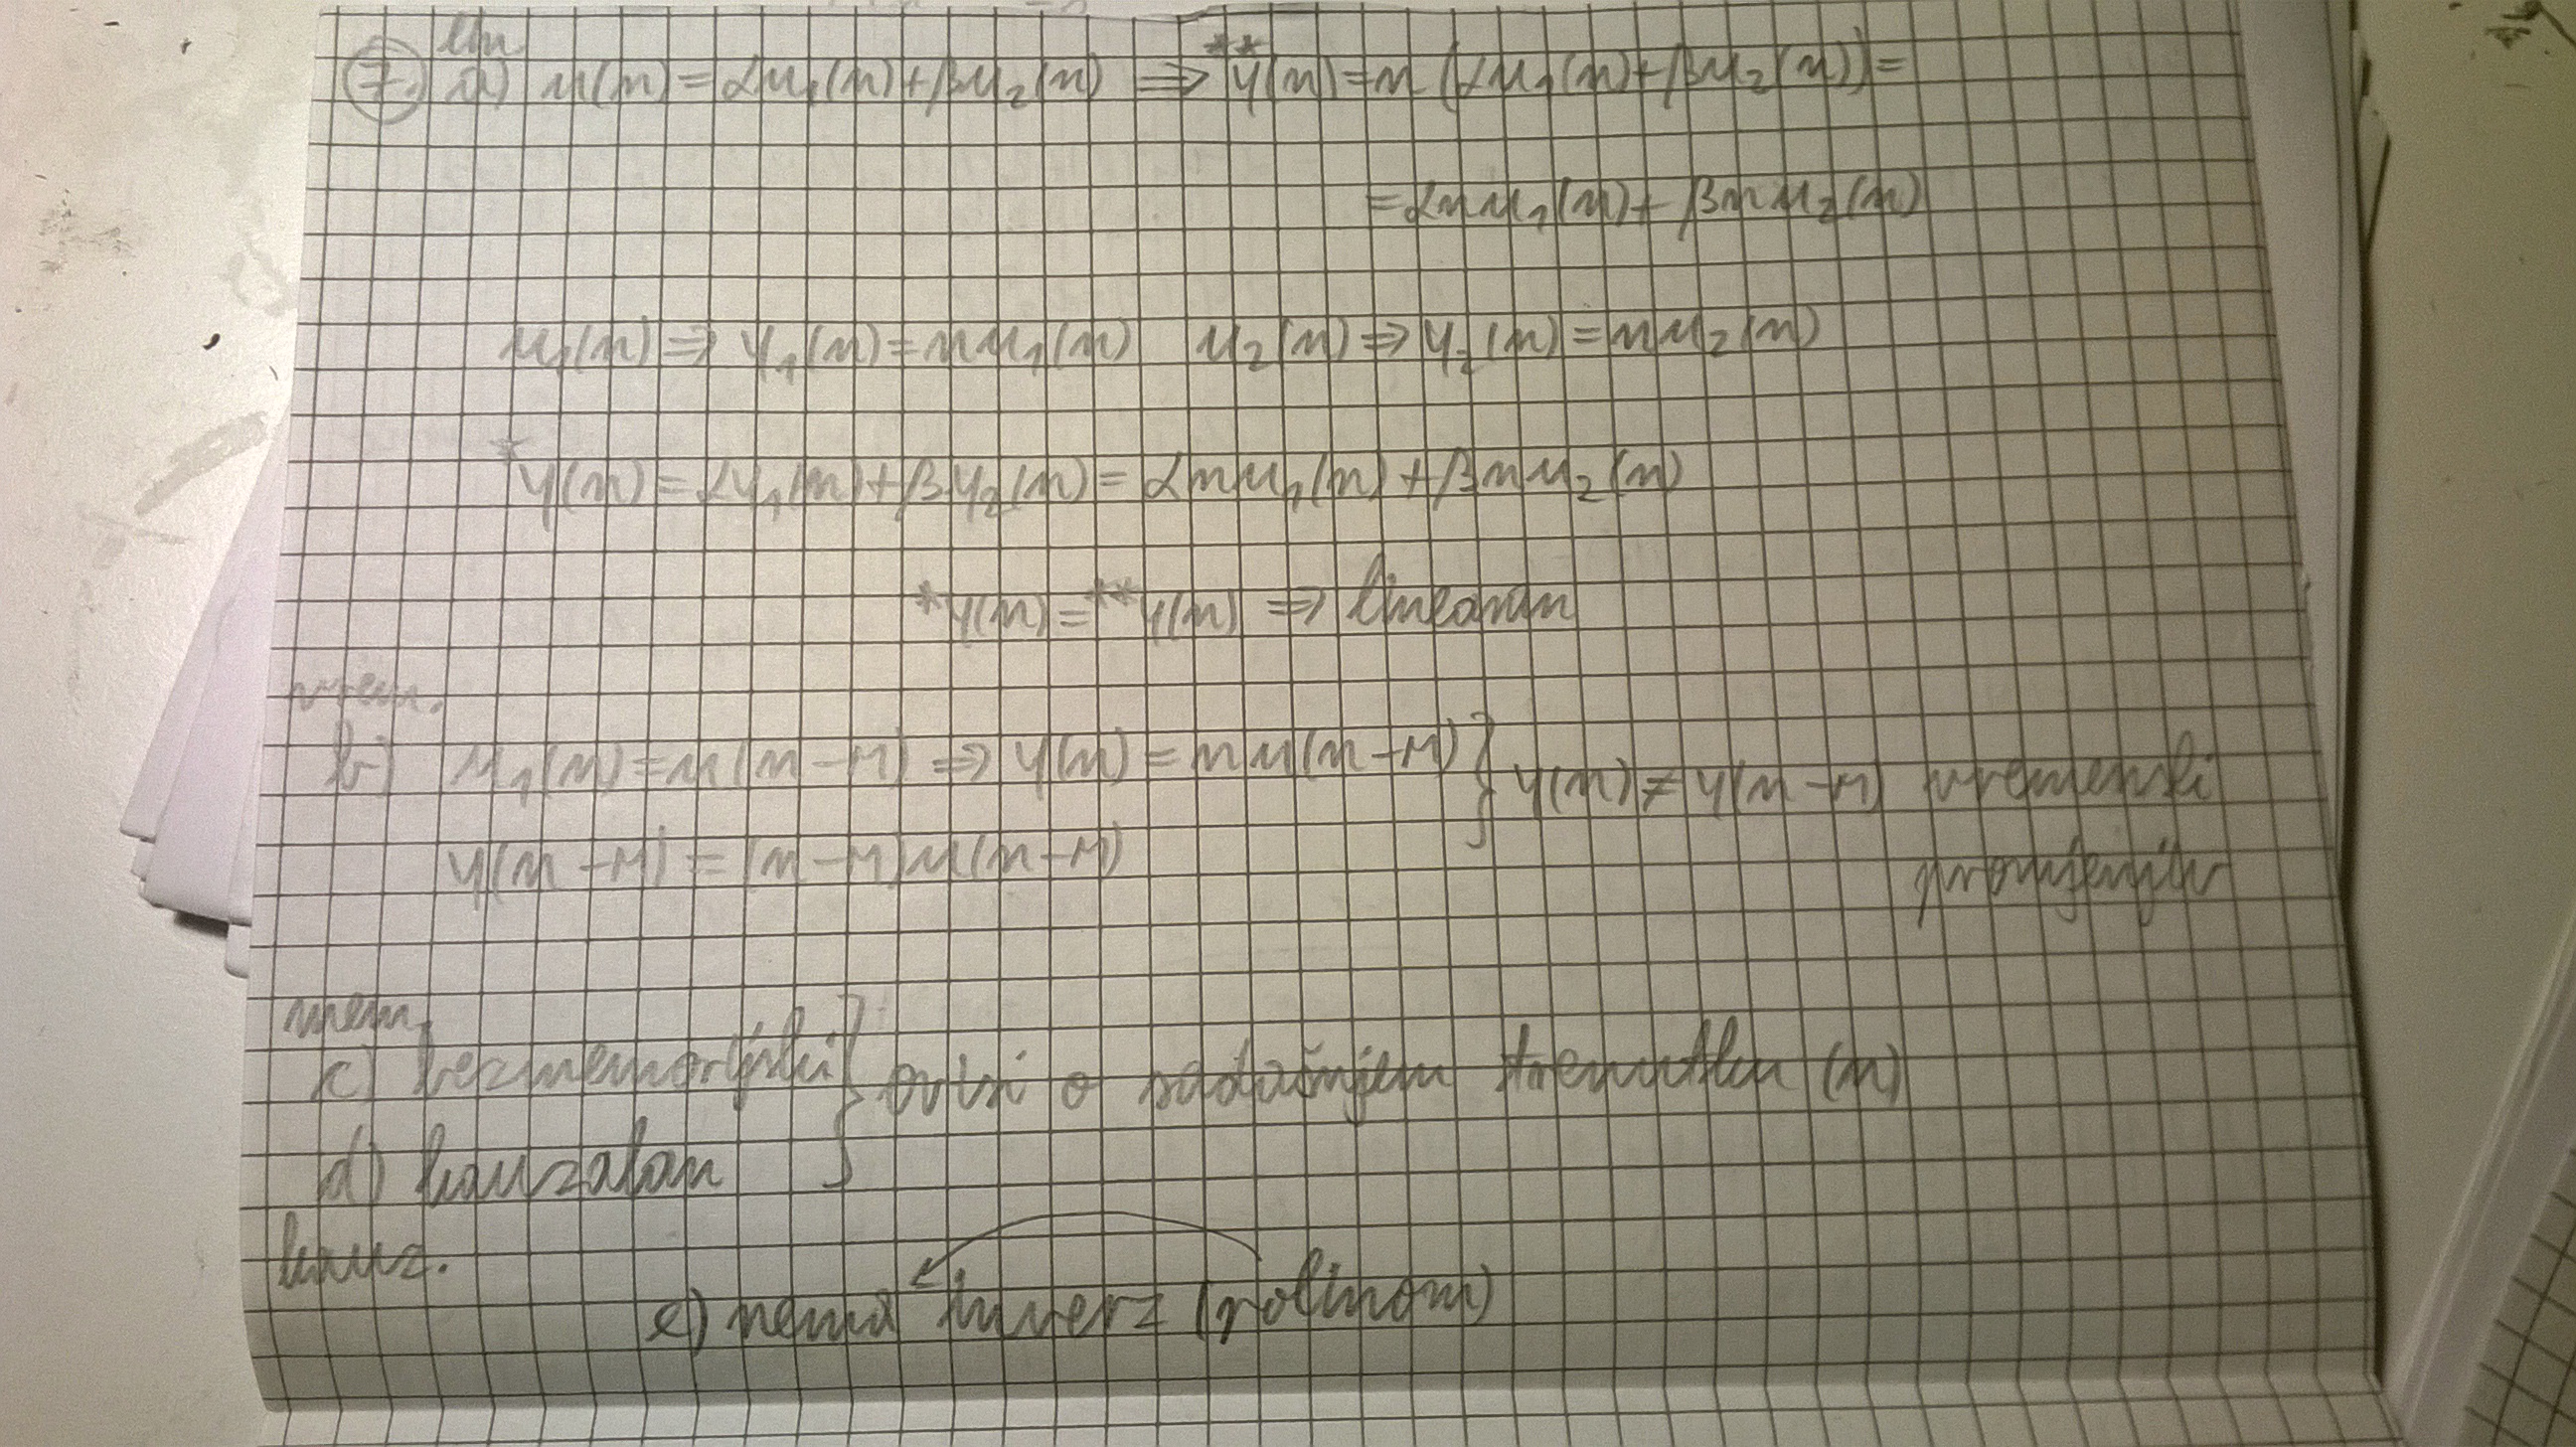 lin
7. a) u(n) = αu₁(n) + βu₂(n) ⇒ **y(n) = n (αu₁(n) + βu₂(n)) =
= αnu₁(n) + βnu₂(n)
u₁(n) ⇒ y₁(n) = nu₁(n) u₂(n) ⇒ y₂(n) = nu₂(n)
*y(n) = αy₁(n) + βy₂(n) = αnu₁(n) + βnu₂(n)
*y(n) = **y(n) ⇒ linearan
vrem.
b) u₁(n) = u(n-M) ⇒ y(n) = nu(n-M) } y(n) ≠ y(n-M) vremenski
y(n-M) = (n-M)u(n-M) promjenjiv
mem.
c) bezmemorijski } ovisi o sadašnjem trenutku (n)
d) kauzalan
kauz.
e) nema inverz (polinom)